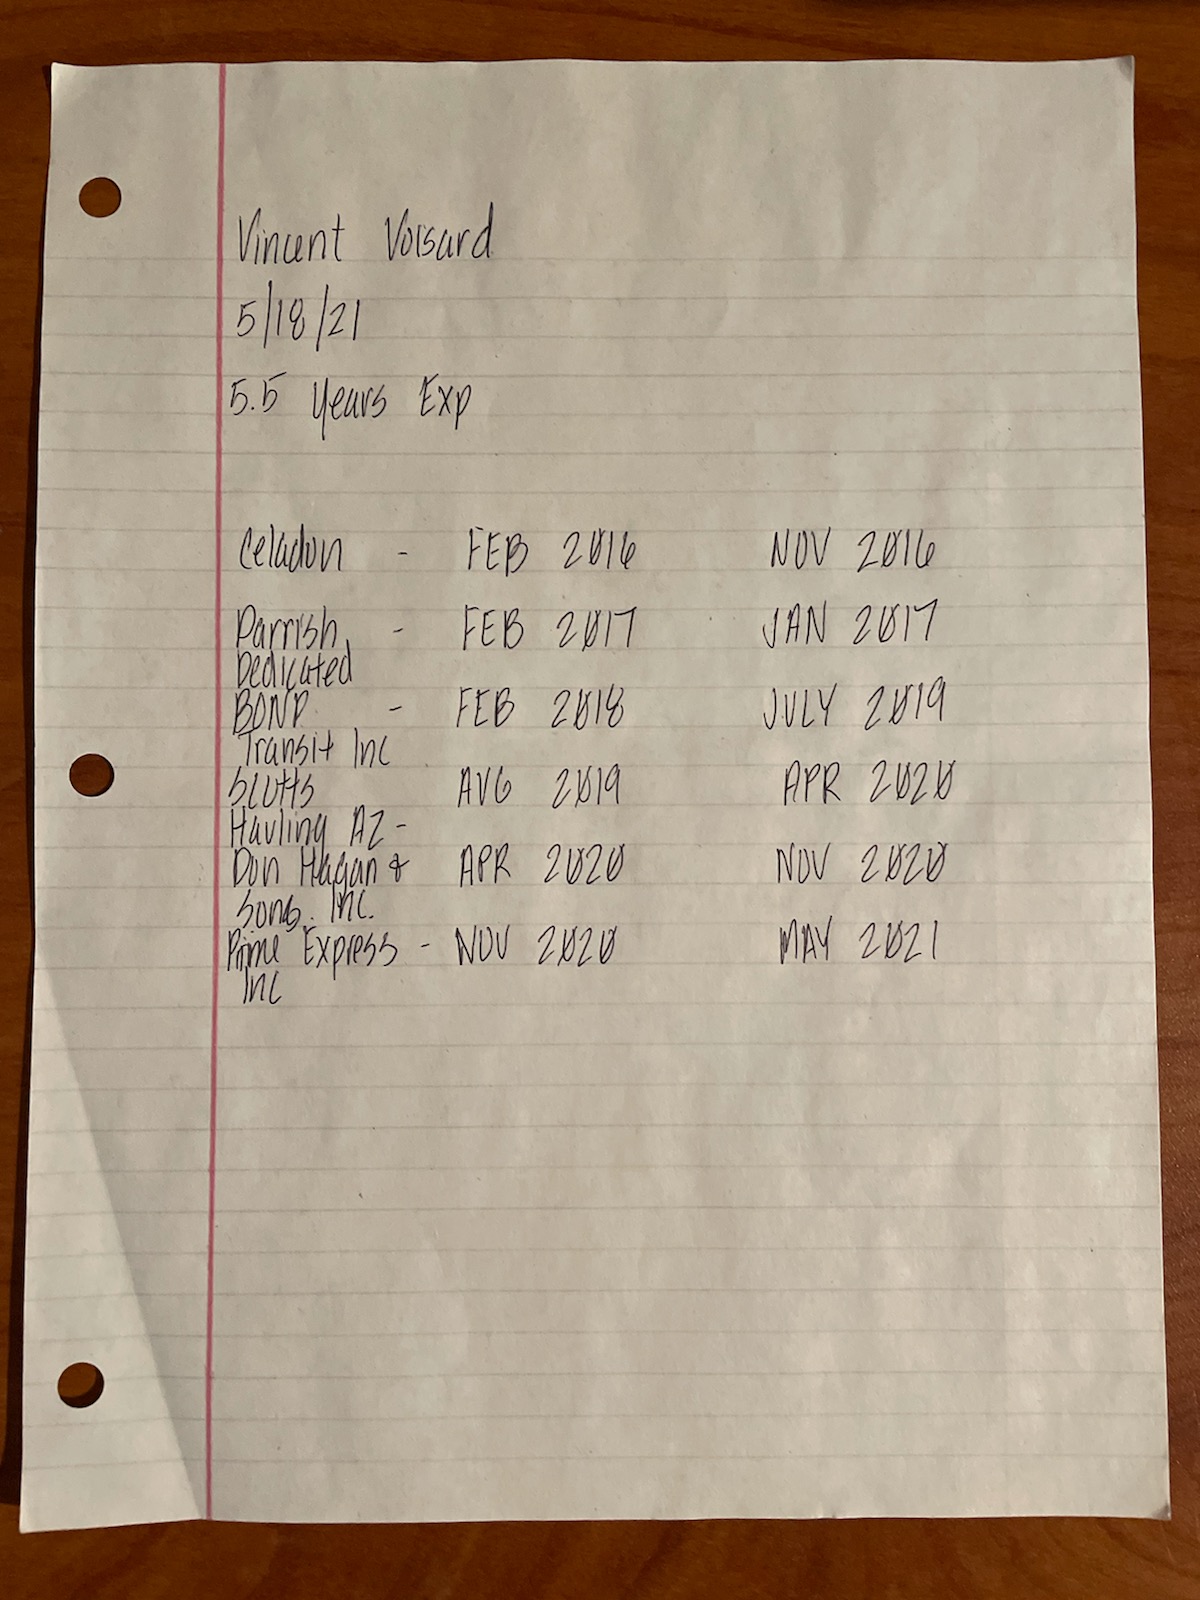 Vincent Voisard
5/18/21
5.5 Years Exp
Celadon - FEB 2016 NOV 2016
Parrish - FEB 2017 JAN 2017
Dedicated
BOND - FEB 2018 JULY 2019
Transit Inc
Scotts AUG 2019 APR 2020
Hauling AZ -
Don Hagan & APR 2020 NOV 2020
Sons. Inc.
Prime Express - NOV 2020 MAY 2021
Inc